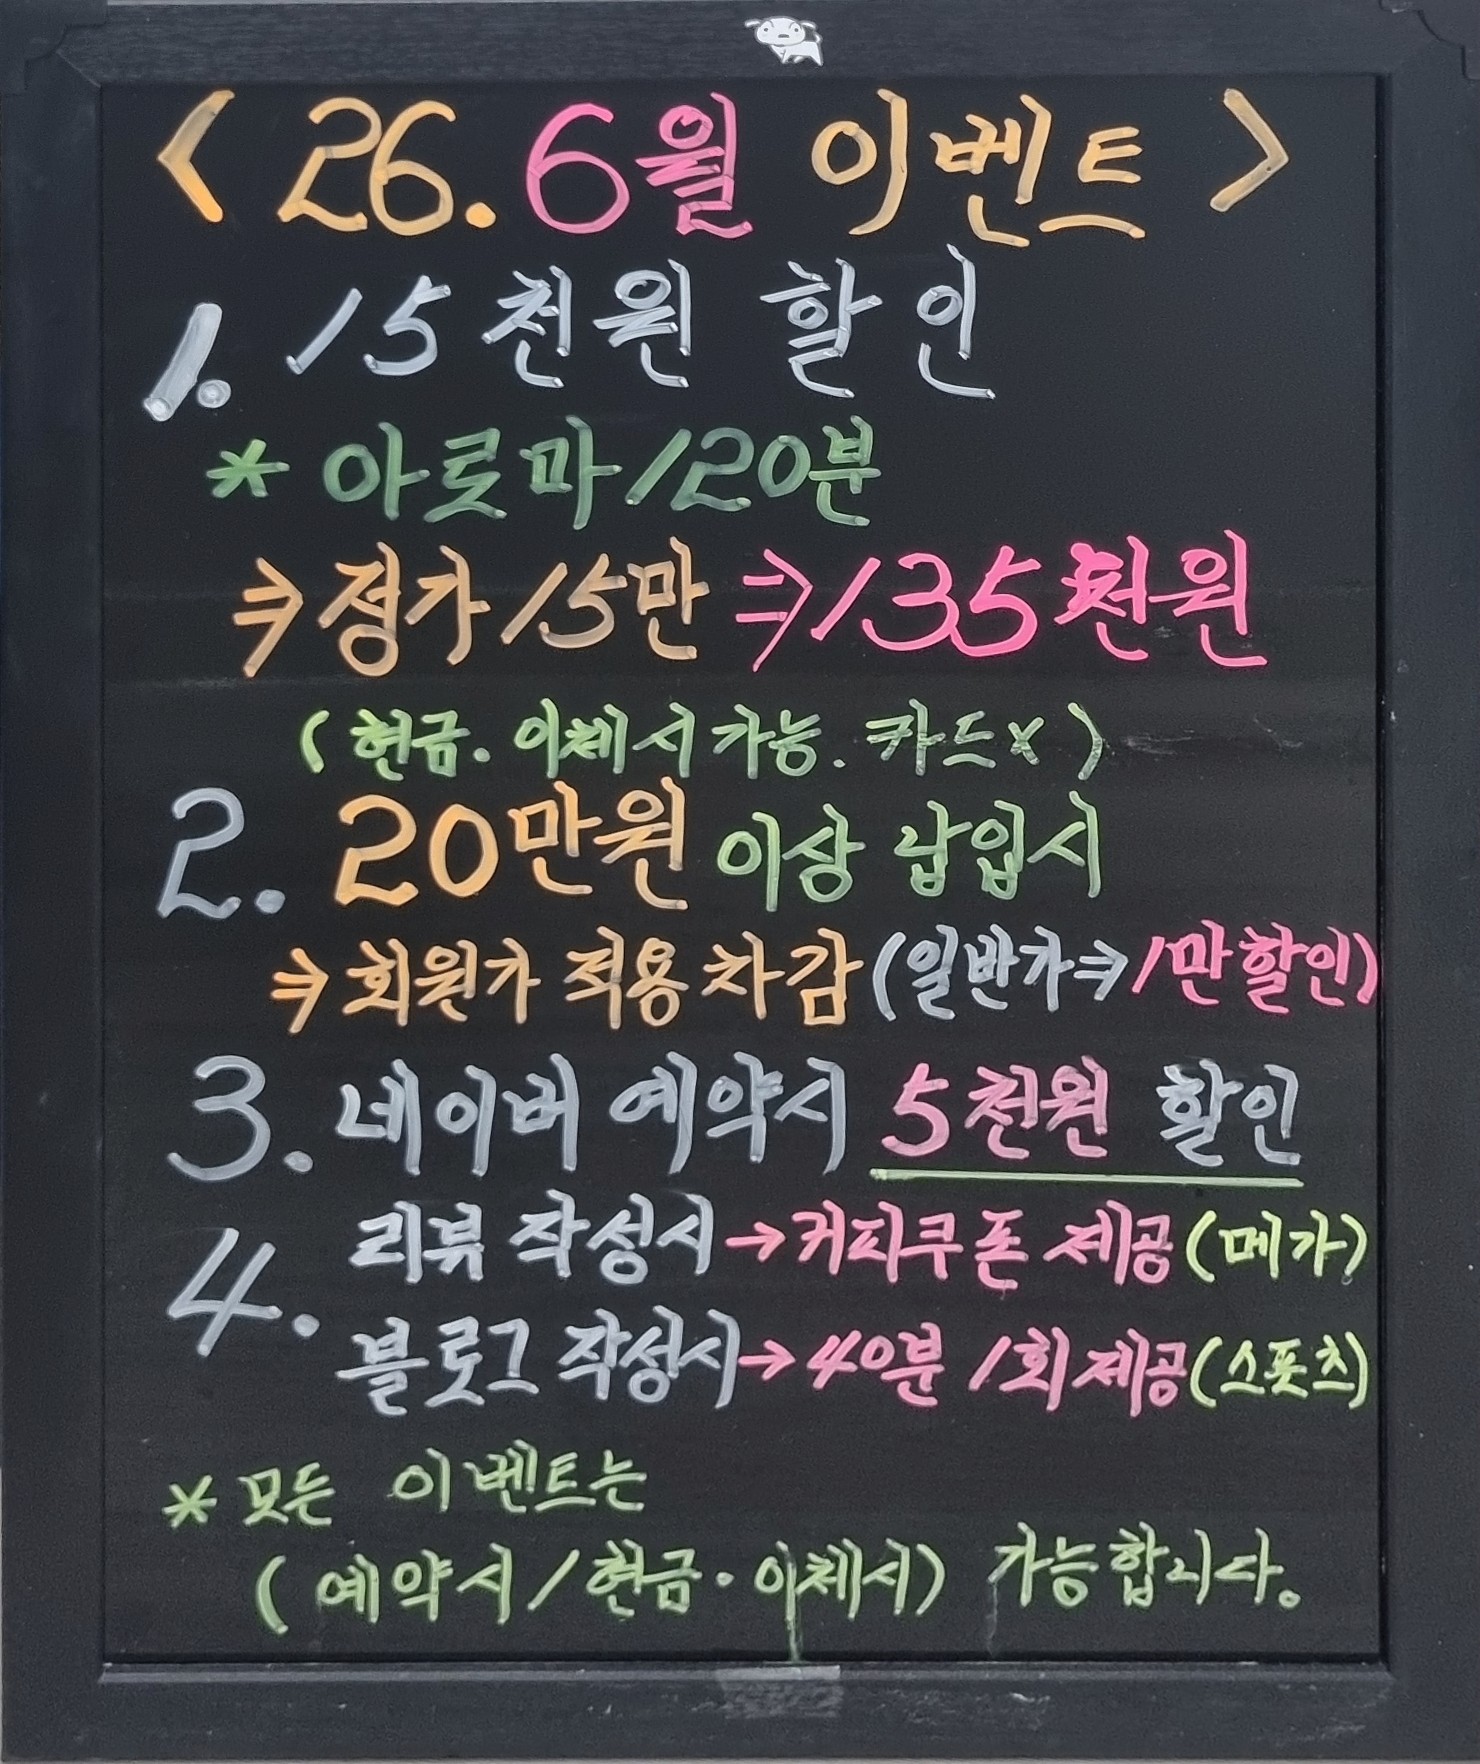 < 26. 6월 이벤트 >
1. 15천원 할인
* 아로마 120분
⇒ 정가 15만 ⇒ 135천원
( 현금. 이체시 가능. 카드x )
2. 20만원 이상 납입시
⇒ 회원가 적용 차감 (일반가 ⇒ 1만 할인)
3. 네이버 예약시 5천원 할인
4. 리뷰 작성시 → 커피쿠폰 제공 (메가)
블로그 작성시 → 40분 1회 제공 (스포츠)
* 모든 이벤트는
( 예약시 / 현금. 이체시) 가능합니다.